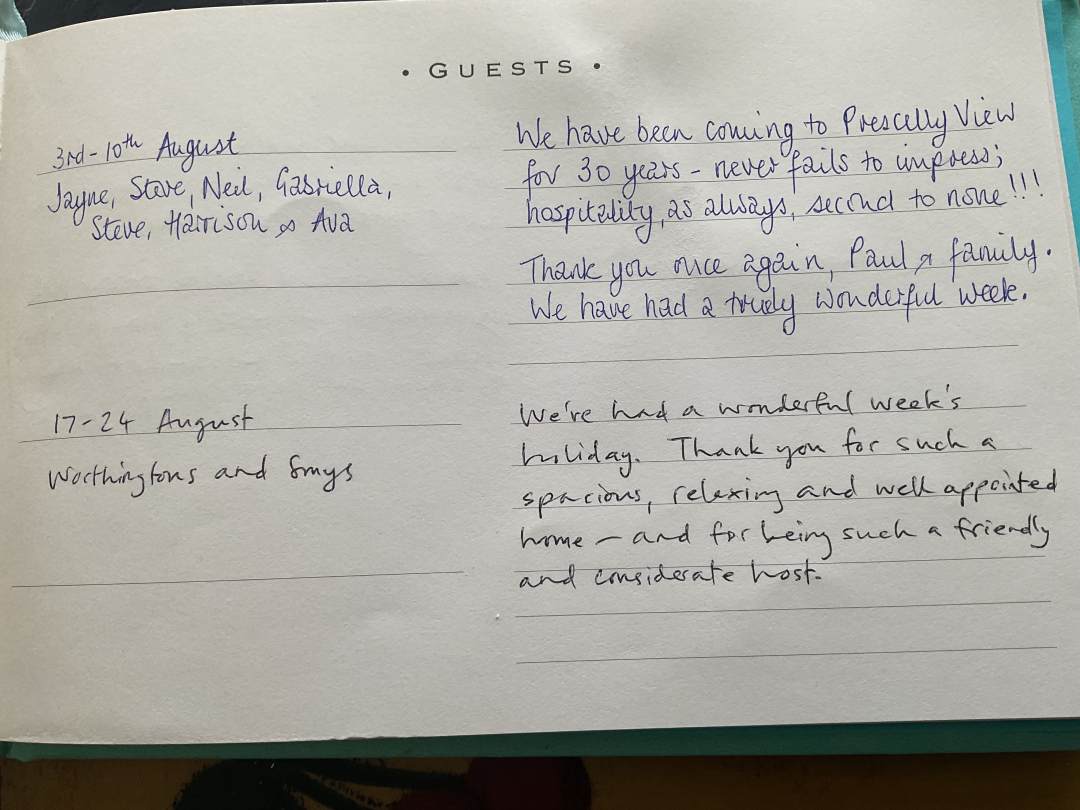 • GUESTS •
3rd-10th August
Jayne, Steve, Neil, Gabriella,
Steve, Harrison & Ava
We have been coming to Prescelly View
for 30 years - never fails to impress;
hospitality, as always, second to none!!!
Thank you once again, Paul & family.
We have had a truely wonderful week.
17-24 August
Worthingtons and Smys
We've had a wonderful week's
holiday. Thank you for such a
spacious, relaxing and well appointed
home - and for being such a friendly
and considerate host.